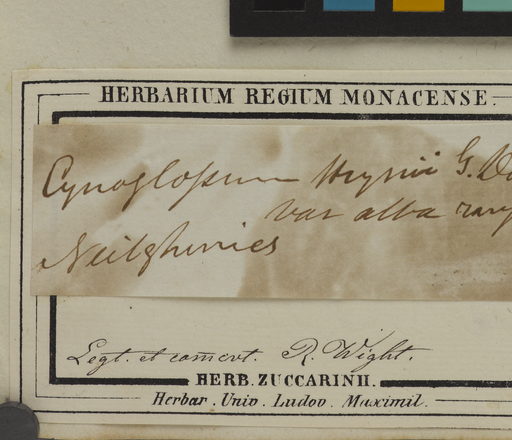 HERBARIUM REGIUM MONACENSE.
Cynoglossum Heynii G. Do
var alba rary
Neilgherries
Legt. et comcvt. R. Wight.
HERB. ZUCCARINII.
Herbar. Univ. Ludov. Maximil.